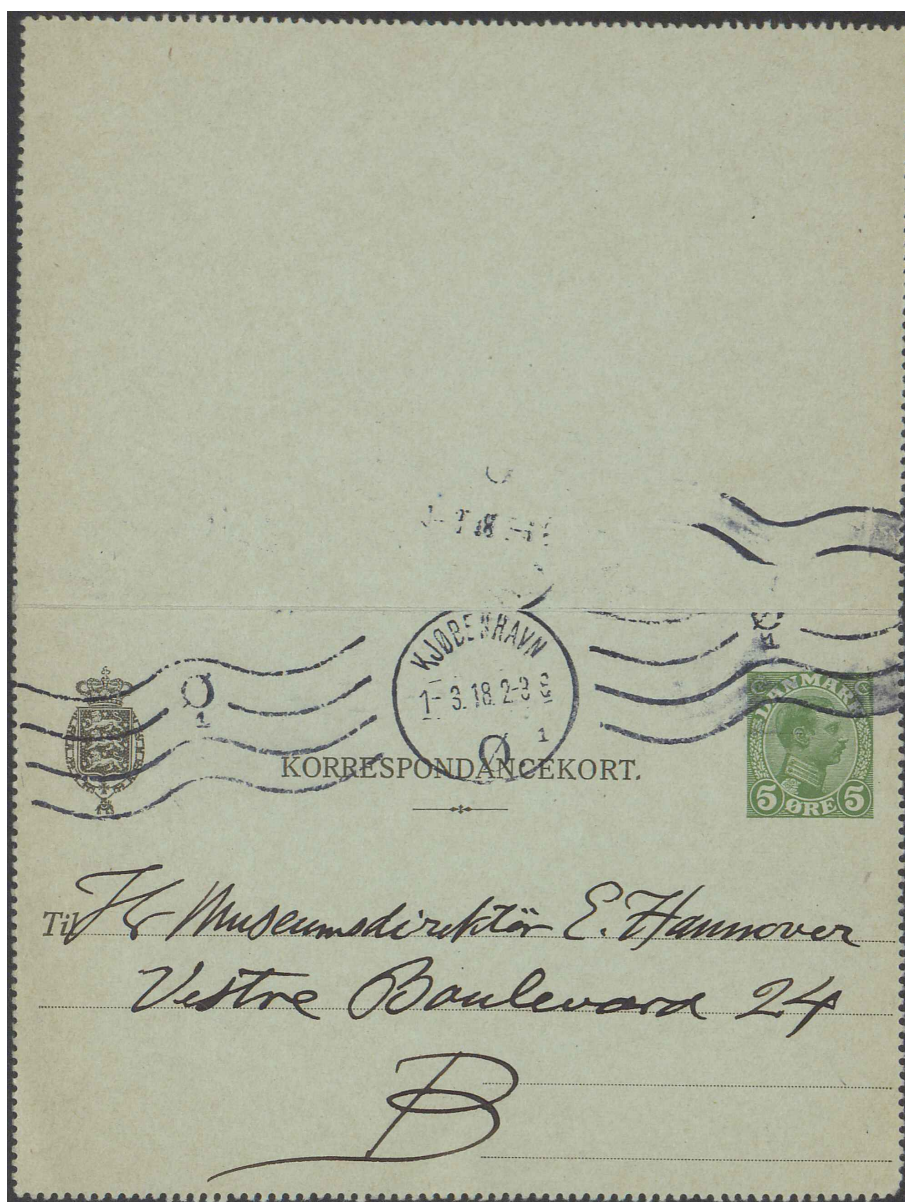 KJØBENHAVN
1-3.18.2-3 E
Ø 1
Ø
1
DANMARK
5 ØRE 5
KORRESPONDANCEKORT.
Til Hr Museumsdirektör E. Hannover
Vestre Boulevard 24
B